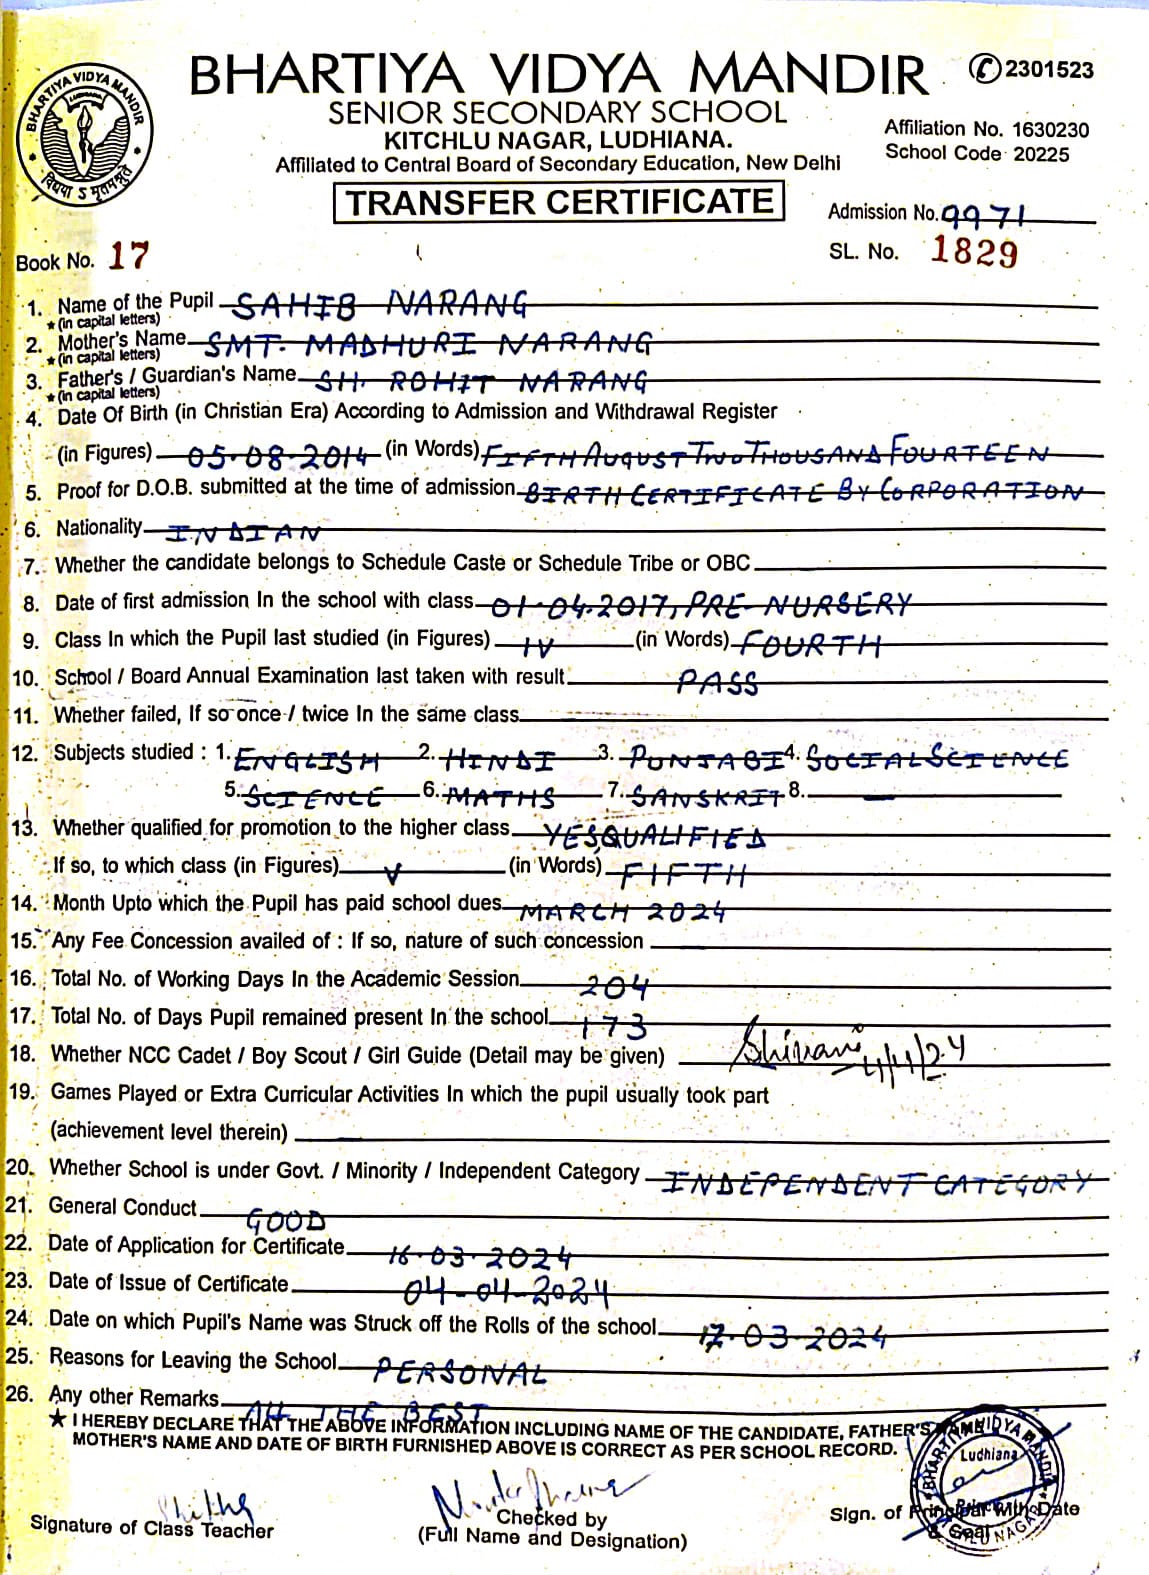 BHARTIYA VIDYA MANDIR
2301523
SENIOR SECONDARY SCHOOL
KITCHLU NAGAR, LUDHIANA.
Affiliated to Central Board of Secondary Education, New Delhi
Affiliation No. 1630230
School Code 20225
BHARTIYA VIDYA MANDIR
विद्यया ऽ मृतमश्नुते
TRANSFER CERTIFICATE
Admission No. 9971
Book No. 17
SL. No. 1829
1. Name of the Pupil SAHIB NARANG
★ (in capital letters)
2. Mother's Name SMT. MADHURI NARANG
★ (in capital letters)
3. Father's / Guardian's Name SH. ROHIT NARANG
★ (in capital letters)
4. Date Of Birth (in Christian Era) According to Admission and Withdrawal Register
(in Figures) 05-08-2014 (in Words) FIFTH AUGUST TWO THOUSAND FOURTEEN
5. Proof for D.O.B. submitted at the time of admission BIRTH CERTIFICATE BY CORPORATION
6. Nationality INDIAN
7. Whether the candidate belongs to Schedule Caste or Schedule Tribe or OBC
8. Date of first admission In the school with class 01-04-2017, PRE-NURSERY
9. Class In which the Pupil last studied (in Figures) IV (in Words) FOURTH
10. School / Board Annual Examination last taken with result PASS
11. Whether failed, If so once / twice In the same class
12. Subjects studied : 1. ENGLISH 2. HINDI 3. PUNJABI 4. SOCIAL SCIENCE
5. SCIENCE 6. MATHS 7. SANSKRIT 8. —
13. Whether qualified for promotion to the higher class YES, QUALIFIED
If so, to which class (in Figures) V (in Words) FIFTH
14. Month Upto which the Pupil has paid school dues MARCH 2024
15. Any Fee Concession availed of : If so, nature of such concession
16. Total No. of Working Days In the Academic Session 204
17. Total No. of Days Pupil remained present In the school 173
18. Whether NCC Cadet / Boy Scout / Girl Guide (Detail may be given) Shivani
19. Games Played or Extra Curricular Activities In which the pupil usually took part
(achievement level therein)
20. Whether School is under Govt. / Minority / Independent Category INDEPENDENT CATEGORY
21. General Conduct GOOD
22. Date of Application for Certificate 16-03-2024
23. Date of Issue of Certificate 04-04-2024
24. Date on which Pupil's Name was Struck off the Rolls of the school 17-03-2024
25. Reasons for Leaving the School PERSONAL
26. Any other Remarks All THE BEST
★ I HEREBY DECLARE THAT THE ABOVE INFORMATION INCLUDING NAME OF THE CANDIDATE, FATHER'S NAME
MOTHER'S NAME AND DATE OF BIRTH FURNISHED ABOVE IS CORRECT AS PER SCHOOL RECORD.
BHARTIYA VIDYA MANDIR
Ludhiana
KITCHLU NAGAR
Signature of Class Teacher
Checked by
(Full Name and Designation)
Sign. of Principal With Date
& Seal